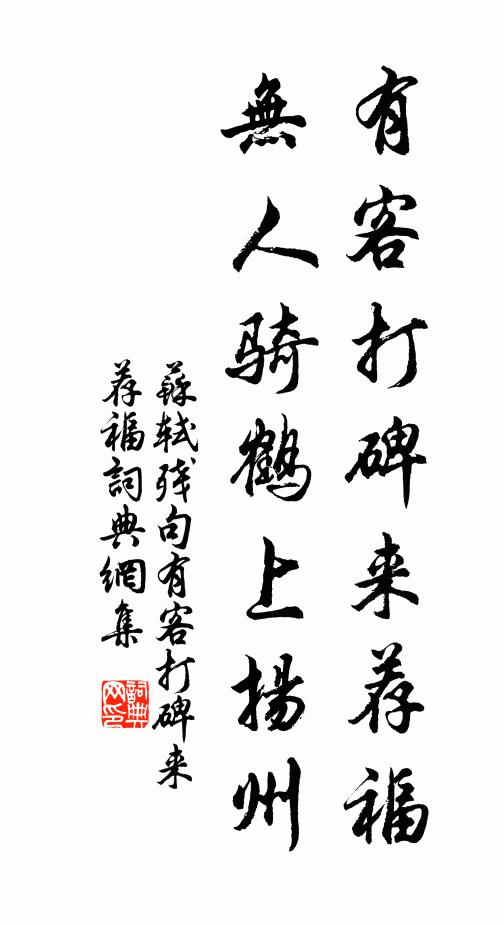 有客打碑来荐福
無人骑鹤上揚州
蘇轼残句有客打碑来
荐福詞典網集
詞典
网印